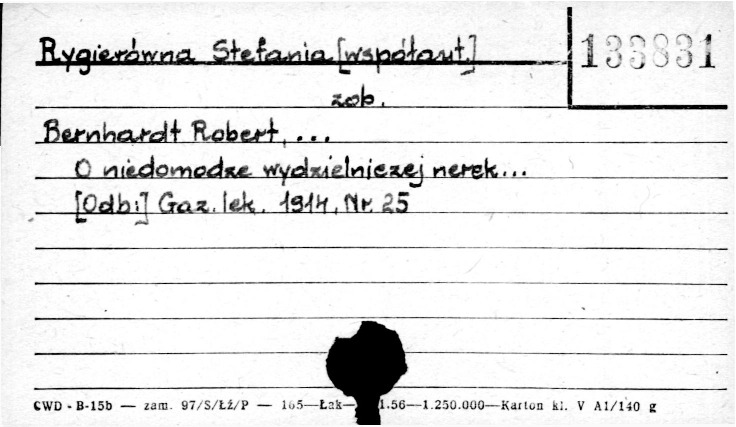 Rygierówna Stefania [współaut.]
133831
zob.
Bernhardt Robert, ...
O niedomodze wydzielniczej nerek...
[Odb:] Gaz. lek. 1914, Nr 25
CWD - B-15b — zam. 97/S/Łź/P — 165—Łak— 1.56—1.250.000—Karton kl. V A1/140 g